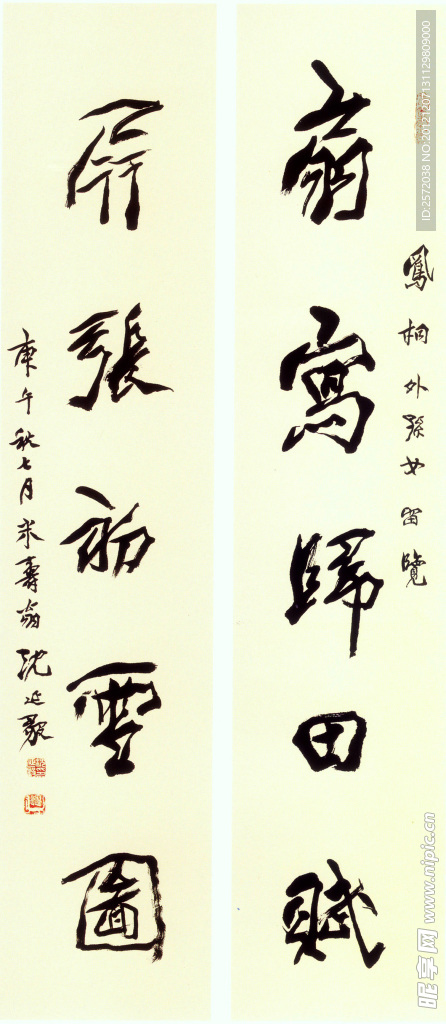 鳳桐外孫女留覽
扇寫歸田賦
屏張初雪圖
庚午秋七月米壽翁沈延毅
ID:2572038 NO:20121207131129809000
昵享网 www.nipic.cn